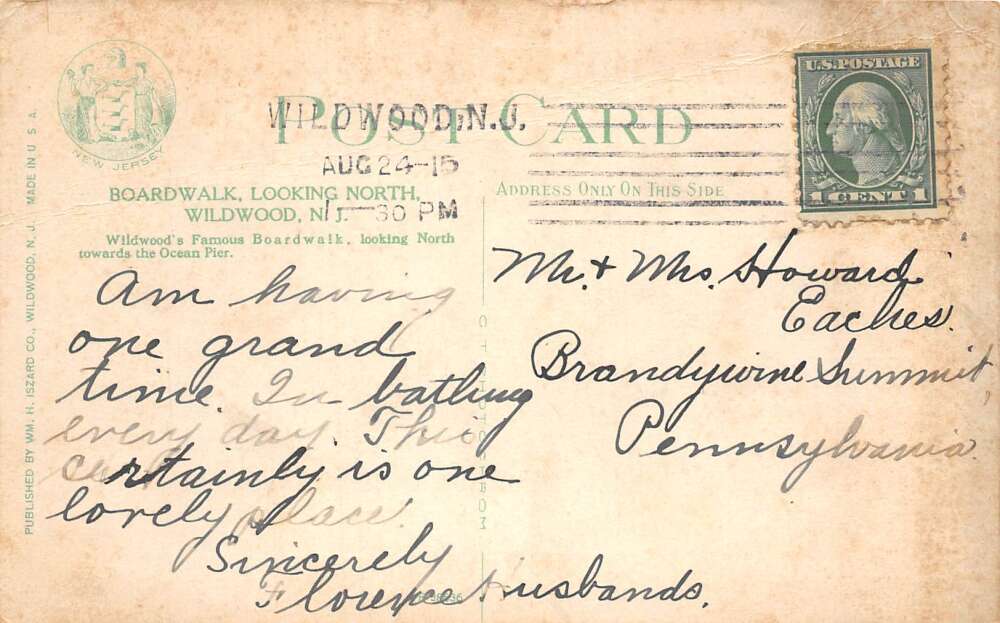 NEW JERSEY
POST CARD
WILDWOOD, N.J.
AUG 24-15
30 PM
U.S. POSTAGE
1 CENT 1
BOARDWALK, LOOKING NORTH,
WILDWOOD, N. J.
Wildwood's Famous Boardwalk, looking North
towards the Ocean Pier.
ADDRESS ONLY ON THIS SIDE
PUBLISHED BY WM. H. ISZARD CO., WILDWOOD, N. J. MADE IN U S A.
Am having
one grand
time. In bathing
every day. This
certainly is one
lovely place.
Sincerely
Florence Husbands.
Mr. & Mrs. Howard
Eaches.
Brandywine Summit
Pennsylvania